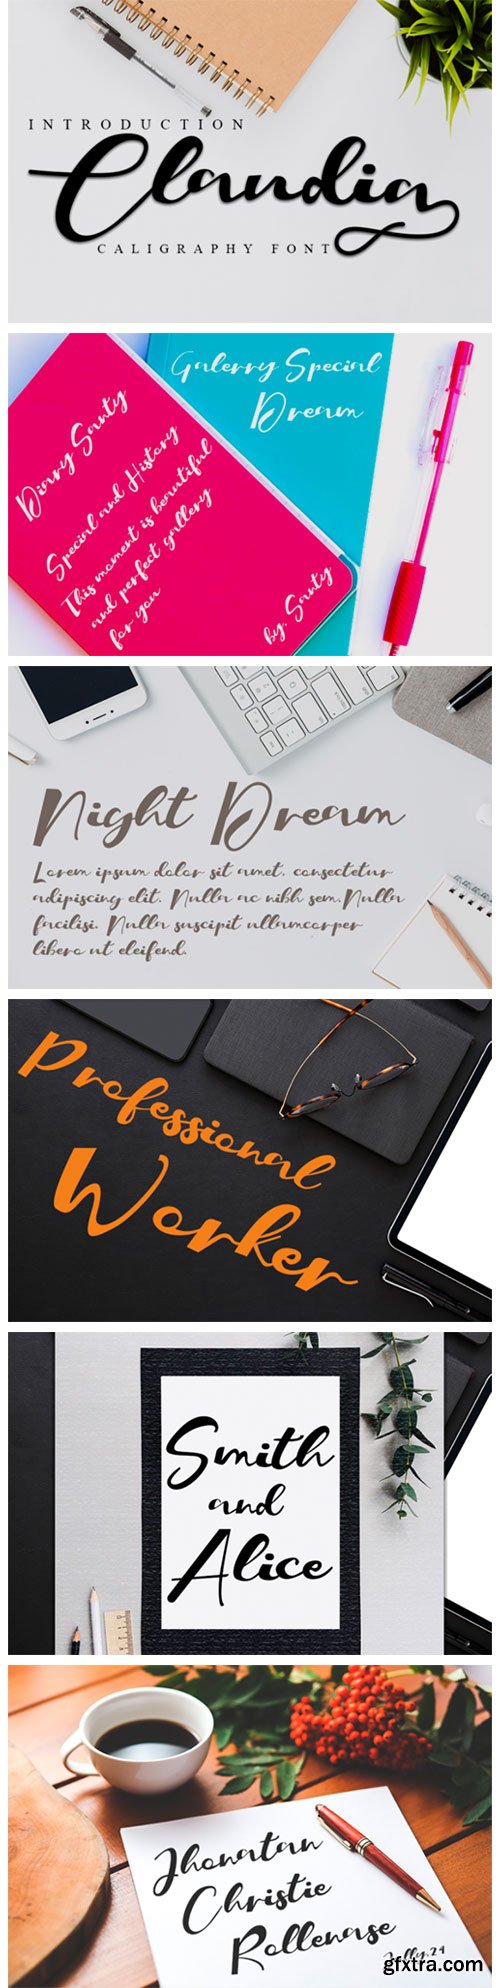 INTRODUCTION
Claudia
CALIGRAPHY FONT
Galerry Special
Dream
Diary Santy
Special and History
This moment is beautiful
and perfect gallery
for you
by. Santy
Night Dream
Lorem ipsum dolor sit amet, consectetur
adipiscing elit. Nulla ac nibh sem.Nulla
facilisi. Nulla suscipit ullamcorper
libero ut eleifend.
Professional
Worker
Smith
and
Alice
Jhonatan
Christie
Rollenase
Jully.24
gfxtra.com